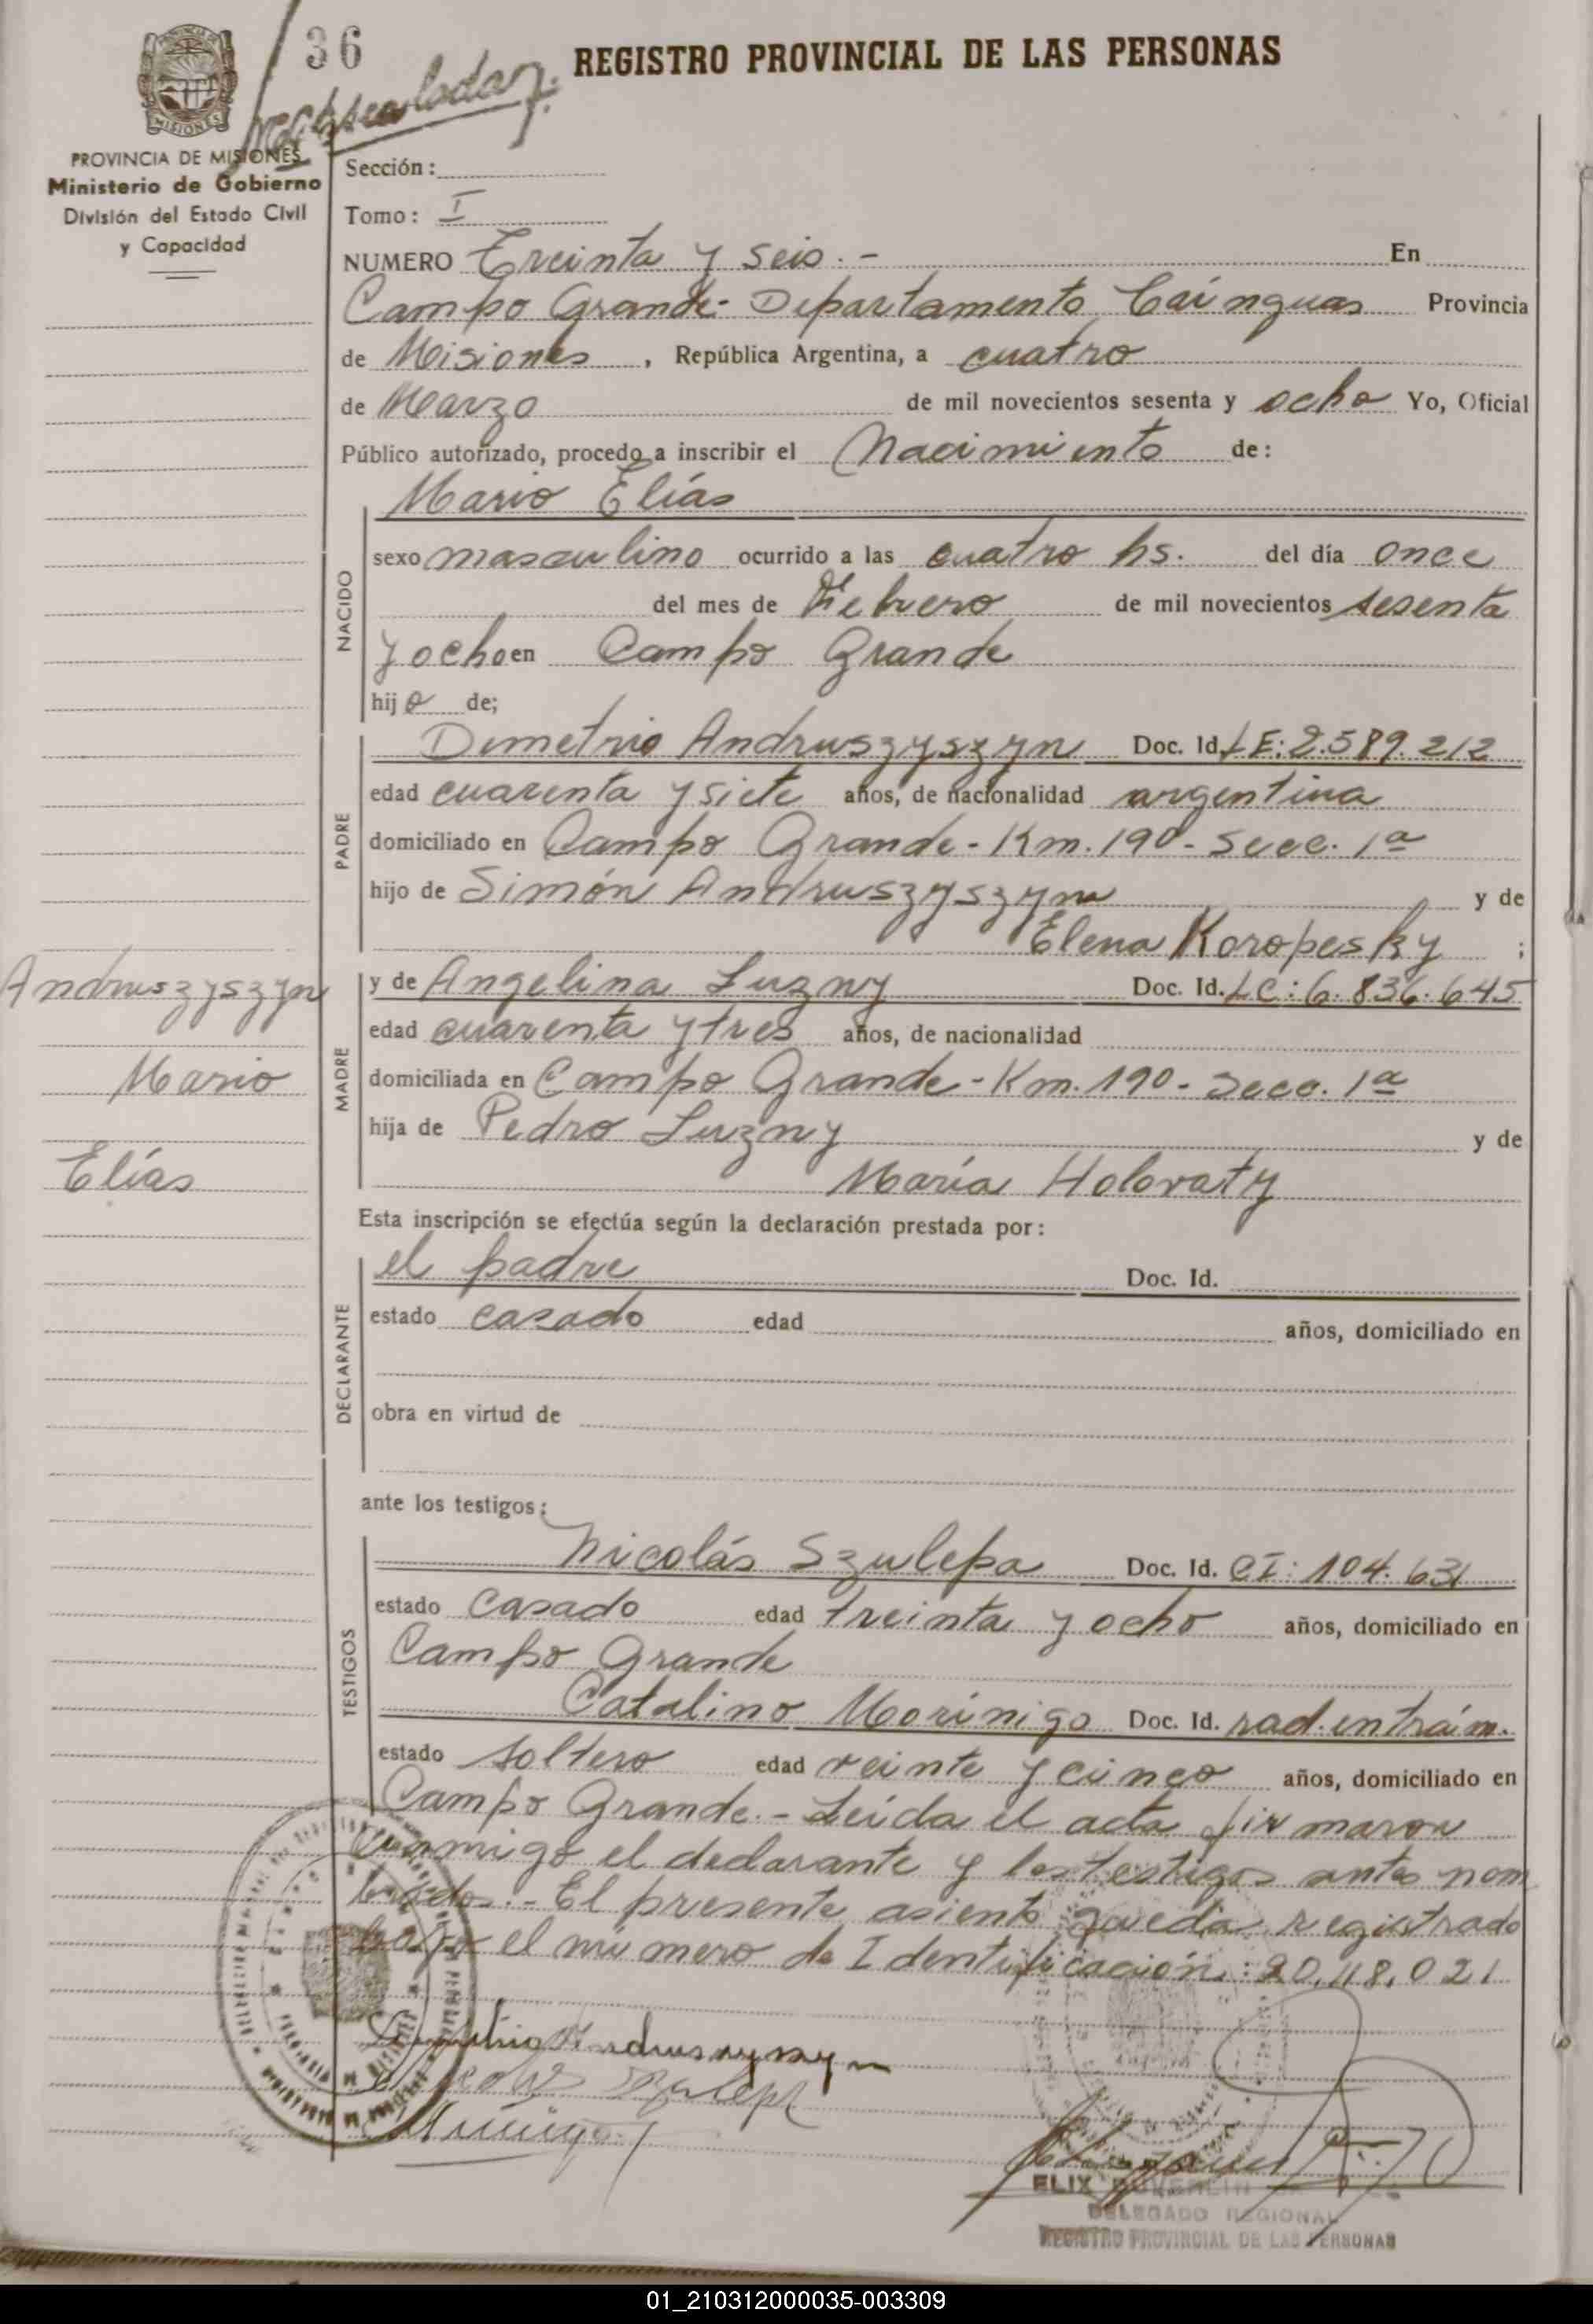 36
REGISTRO PROVINCIAL DE LAS PERSONAS
MISIONES
PROVINCIA DE MISIONES
Ministerio de Gobierno
División del Estado Civil
y Capacidad
Sección:
Tomo: I
NUMERO Treinta y seis.- En
Campo Grande- Departamento Cainguas Provincia
de Misiones, República Argentina, a cuatro
de Marzo de mil novecientos sesenta y ocho Yo, Oficial
Público autorizado, procedo a inscribir el Nacimiento de:
Mario Elías
NACIDO
sexo masculino ocurrido a las cuatro hs. del día once
del mes de Febrero de mil novecientos sesenta
y ocho en Campo Grande
hijo de;
PADRE
Demetrio Andruszyszyn Doc. Id. LE: 2.589.212
edad cuarenta y siete años, de nacionalidad argentina
domiciliado en Campo Grande - Km. 190 - Secc. 1ª
hijo de Simón Andruszyszyn y de
Elena Koropesky ;
Andruszyszyn
Mario
Elías
MADRE
y de Angelina Luzny Doc. Id. LC: 6.836.645
edad cuarenta y tres años, de nacionalidad
domiciliada en Campo Grande - Km. 190 - Secc. 1ª
hija de Pedro Luzny y de
María Holovaty
Esta inscripción se efectúa según la declaración prestada por:
DECLARANTE
el padre Doc. Id.
estado casado edad años, domiciliado en
obra en virtud de
ante los testigos:
TESTIGOS
Nicolás Szulepa Doc. Id. CI: 104.631
estado casado edad treinta y ocho años, domiciliado en
Campo Grande
Catalino Morínigo Doc. Id. rad. en trám.
estado soltero edad veinte y cinco años, domiciliado en
Campo Grande.- Leída el acta firmaron
conmigo el declarante y los testigos antes nom
brados.- El presente asiento queda registrado
bajo el número de Identificación: 20.118.021
DELEGADO REGIONAL
REGISTRO PROVINCIAL DE LAS PERSONAS
01_210312000035-003309